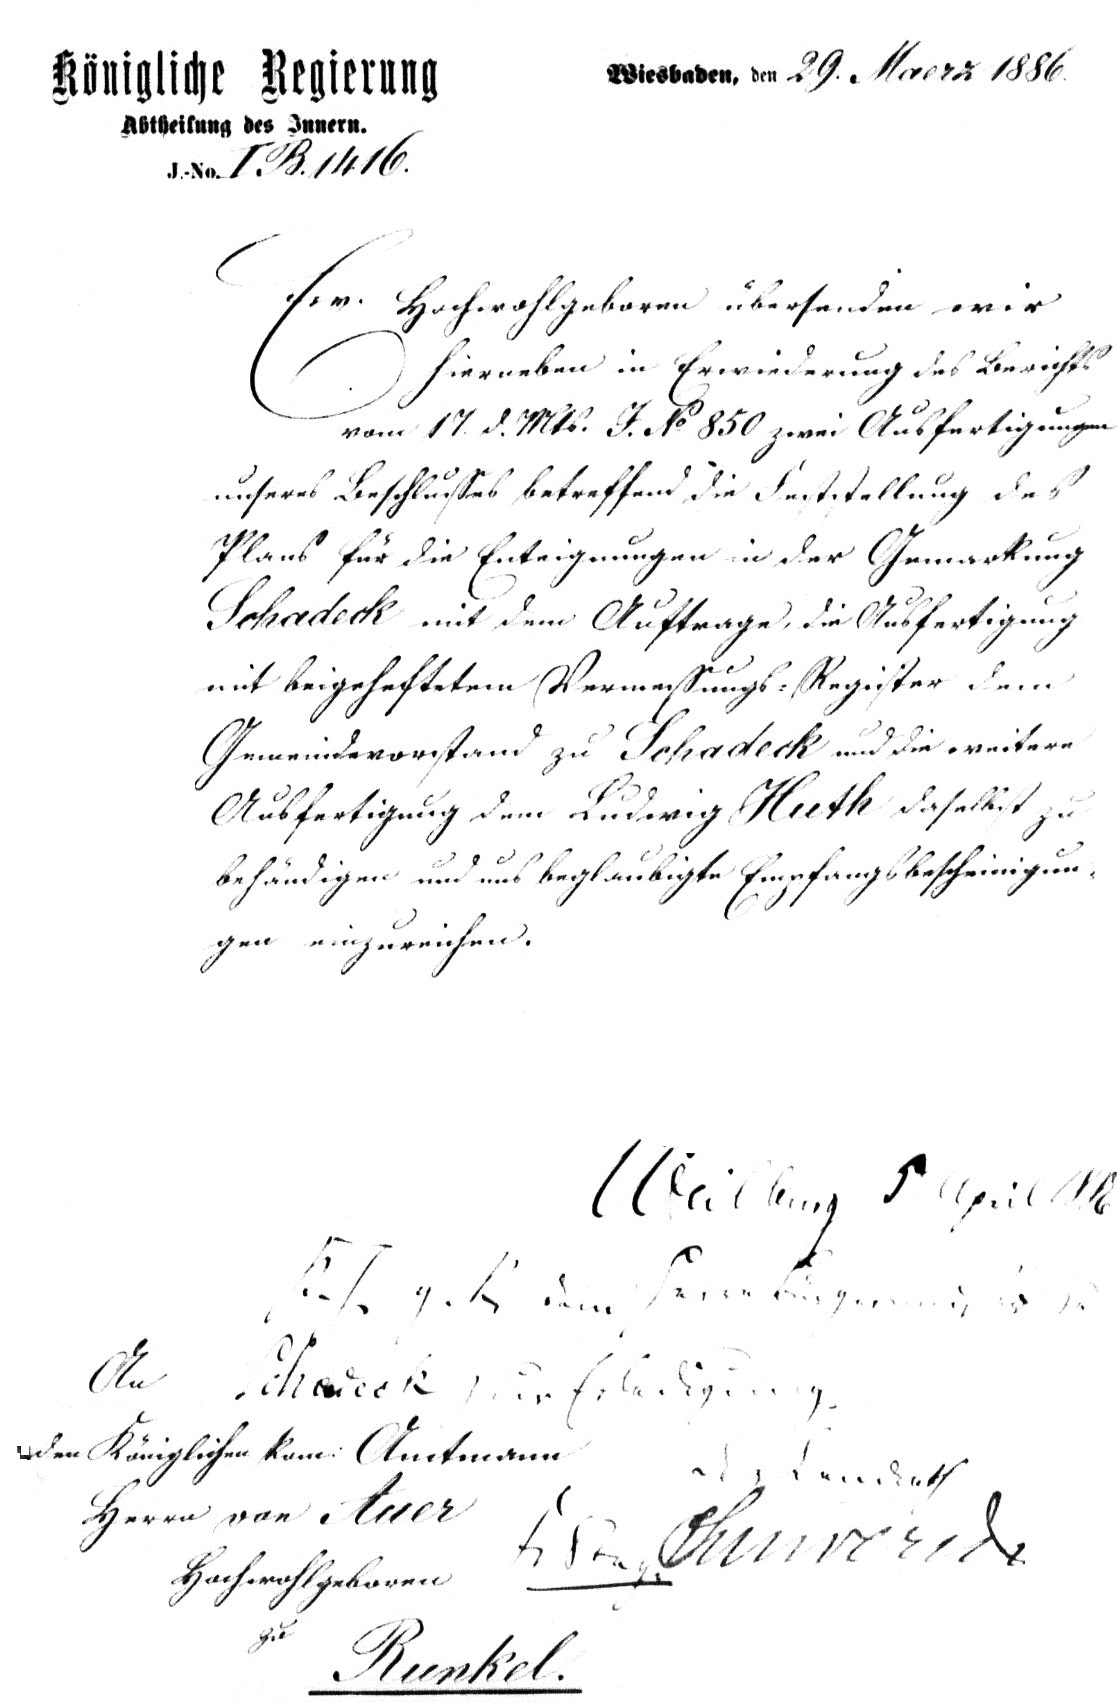 Königliche Regierung
Abtheilung des Innern.
J.-No. I. B. 1416.
Wiesbaden, den 29. Maerz 1886.
Ew. Hochwohlgeboren übersenden wir
hierneben in Erwiederung des Berichts
vom 17. d. Mts. J. No 850 zwei Ausfertigungen
unseres Beschlusses betreffend die Feststellung des
Plans für die Enteignungen in der Gemarkung
Schadeck mit dem Auftrage, die Ausfertigung
mit beigeheftetem Vermessungs-Register dem
Gemeindevorstand zu Schadeck und die weitere
Ausfertigung dem Ludwig Huth daselbst zu
behändigen und uns beglaubigte Empfangsbescheinigun-
gen einzureichen.
Weilburg 5 April
dem Herrn Bürgermeister zu
Schadeck zur Erledigung.
Landrath
An
den Königlichen kom: Amtmann
Herrn von Auer
Hochwohlgeboren
zu
Runkel.